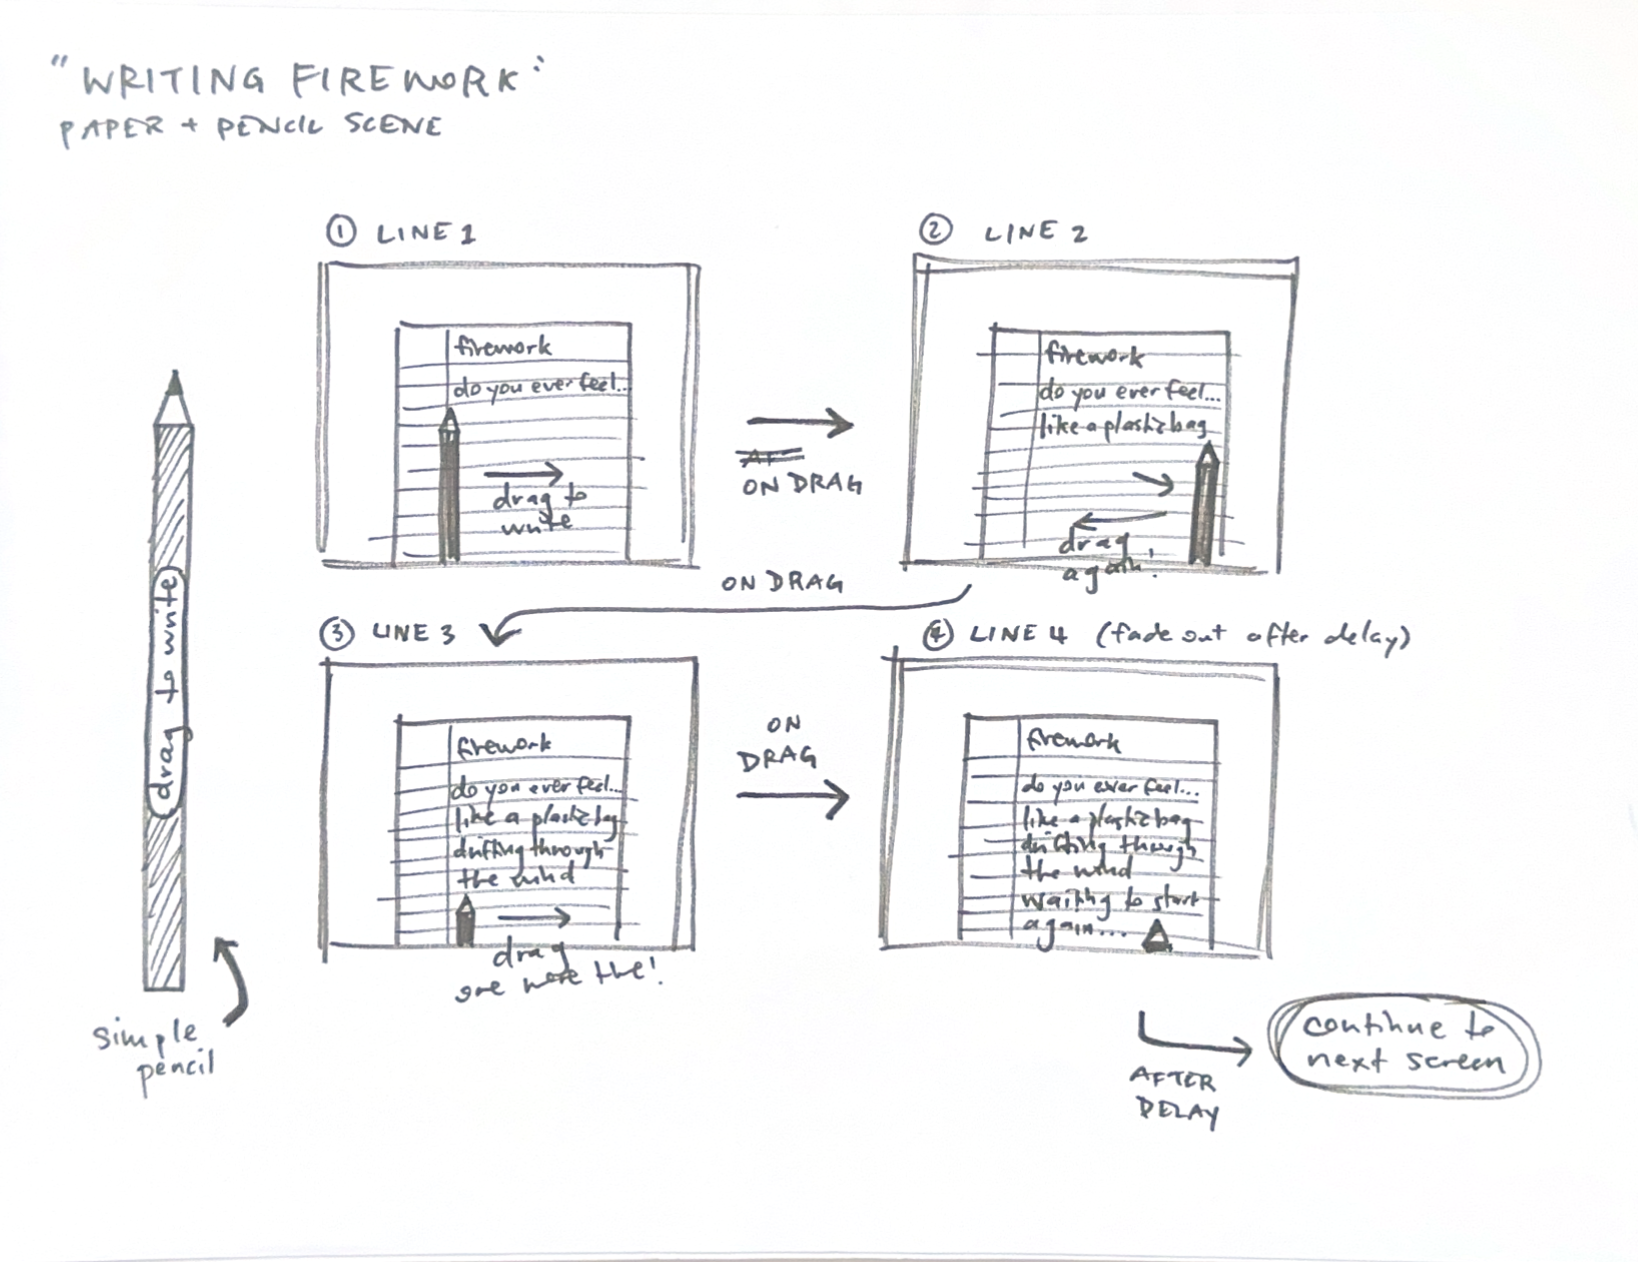 "WRITING FIREWORK"
PAPER + PENCIL SCENE
① LINE 1
firework
do you ever feel...
drag to
write
ON DRAG
② LINE 2
firework
do you ever feel...
like a plastic bag
drag
again!
ON DRAG
③ LINE 3
firework
do you ever feel...
like a plastic bag
drifting through
the wind
drag
one more time!
ON
DRAG
④ LINE 4 (fade out after delay)
firework
do you ever feel...
like a plastic bag
drifting through
the wind
waiting to start
again...
AFTER
DELAY
continue to
next screen
drag to write
simple
pencil